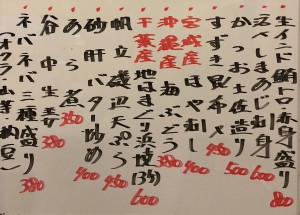 生インド鮪トロ赤身盛り 800
活〆しまあじ刺身 600
かつお土佐造り 500
すずき昆布〆 450
宮城産 ほや刺し 400
沖縄産 海ぶどう 380
千葉産 地はまぐり浜焼(3ケ) 600
帆立磯辺天ぷら 450
砂肝バター炒め 400
あら煮 350
谷中生姜 380
ネバネバ三種盛り
(オクラ・山芋・納豆) 380